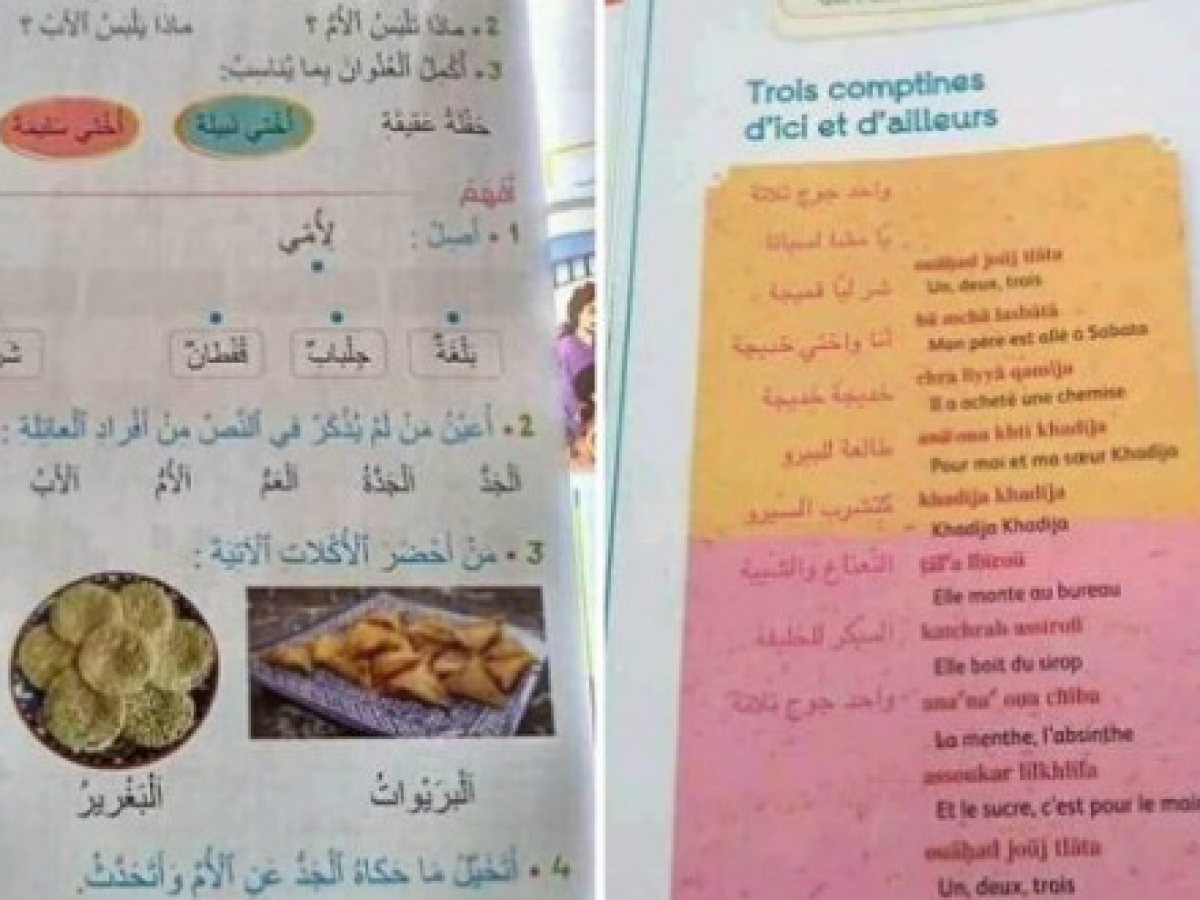 2 • ماذا تَلْبَسُ ٱلْأُمُّ ؟ ماذا يَلْبَسُ ٱلْأَبُ ؟
3 • أُكْمِلُ ٱلْعُنْوانَ بِما يُناسِبُ:
حَفْلَةُ عَقيقَةِ أُخْتي نَبيلَة أُخْتي سَليمَة
أَفْهَمُ
1 • أَصِلُ : لِأُمّي
بَلْغَةٌ جِلْبابٌ قُفْطانٌ
2 • أُعَيِّنُ مَنْ لَمْ يُذْكَرْ في ٱلنَّصِّ مِنْ أَفْرادِ ٱلْعائِلَة :
ٱلْجَدُّ ٱلْجَدَّةُ ٱلْعَمُّ ٱلْأُمُّ ٱلْأَبُ
3 • مَنْ أَحْضَرَ ٱلْأَكَلاتِ ٱلْآتِيَةَ :
ٱلْبَرَيْواتُ ٱلْبَغْريرُ
4 • أَتَخَيَّلُ مَا حَكاهُ ٱلْجَدُّ عَنِ ٱلْأُمِّ وَأَتَحَدَّثُ.
Trois comptines
d'ici et d'ailleurs
واحد جوج تلاتة
با مشا لسباتا
شر ليّا قميجة
أنا واختي خديجة
خديجة خديجة
طالعة للبيرو
كتشرب السيرو
النّعناع والشّيبة
السكر للخليفة
واحد جوج تلاتة
ouāḥad joūj tlāta
Un, deux, trois
bā mchā lasbāta
Mon père est allé à Sabata
chra liyyā qamija
Il a acheté une chemise
anā oua khti khadija
Pour moi et ma sœur Khadija
khadija khadija
Khadija Khadija
ṭāl'a lbiroū
Elle monte au bureau
katchrab assiroū
Elle boit du sirop
ana'na' oua chiba
La menthe, l'absinthe
assoukar lilkhlifa
Et le sucre, c'est pour le
ouāḥad joūj tlāta
Un, deux, trois